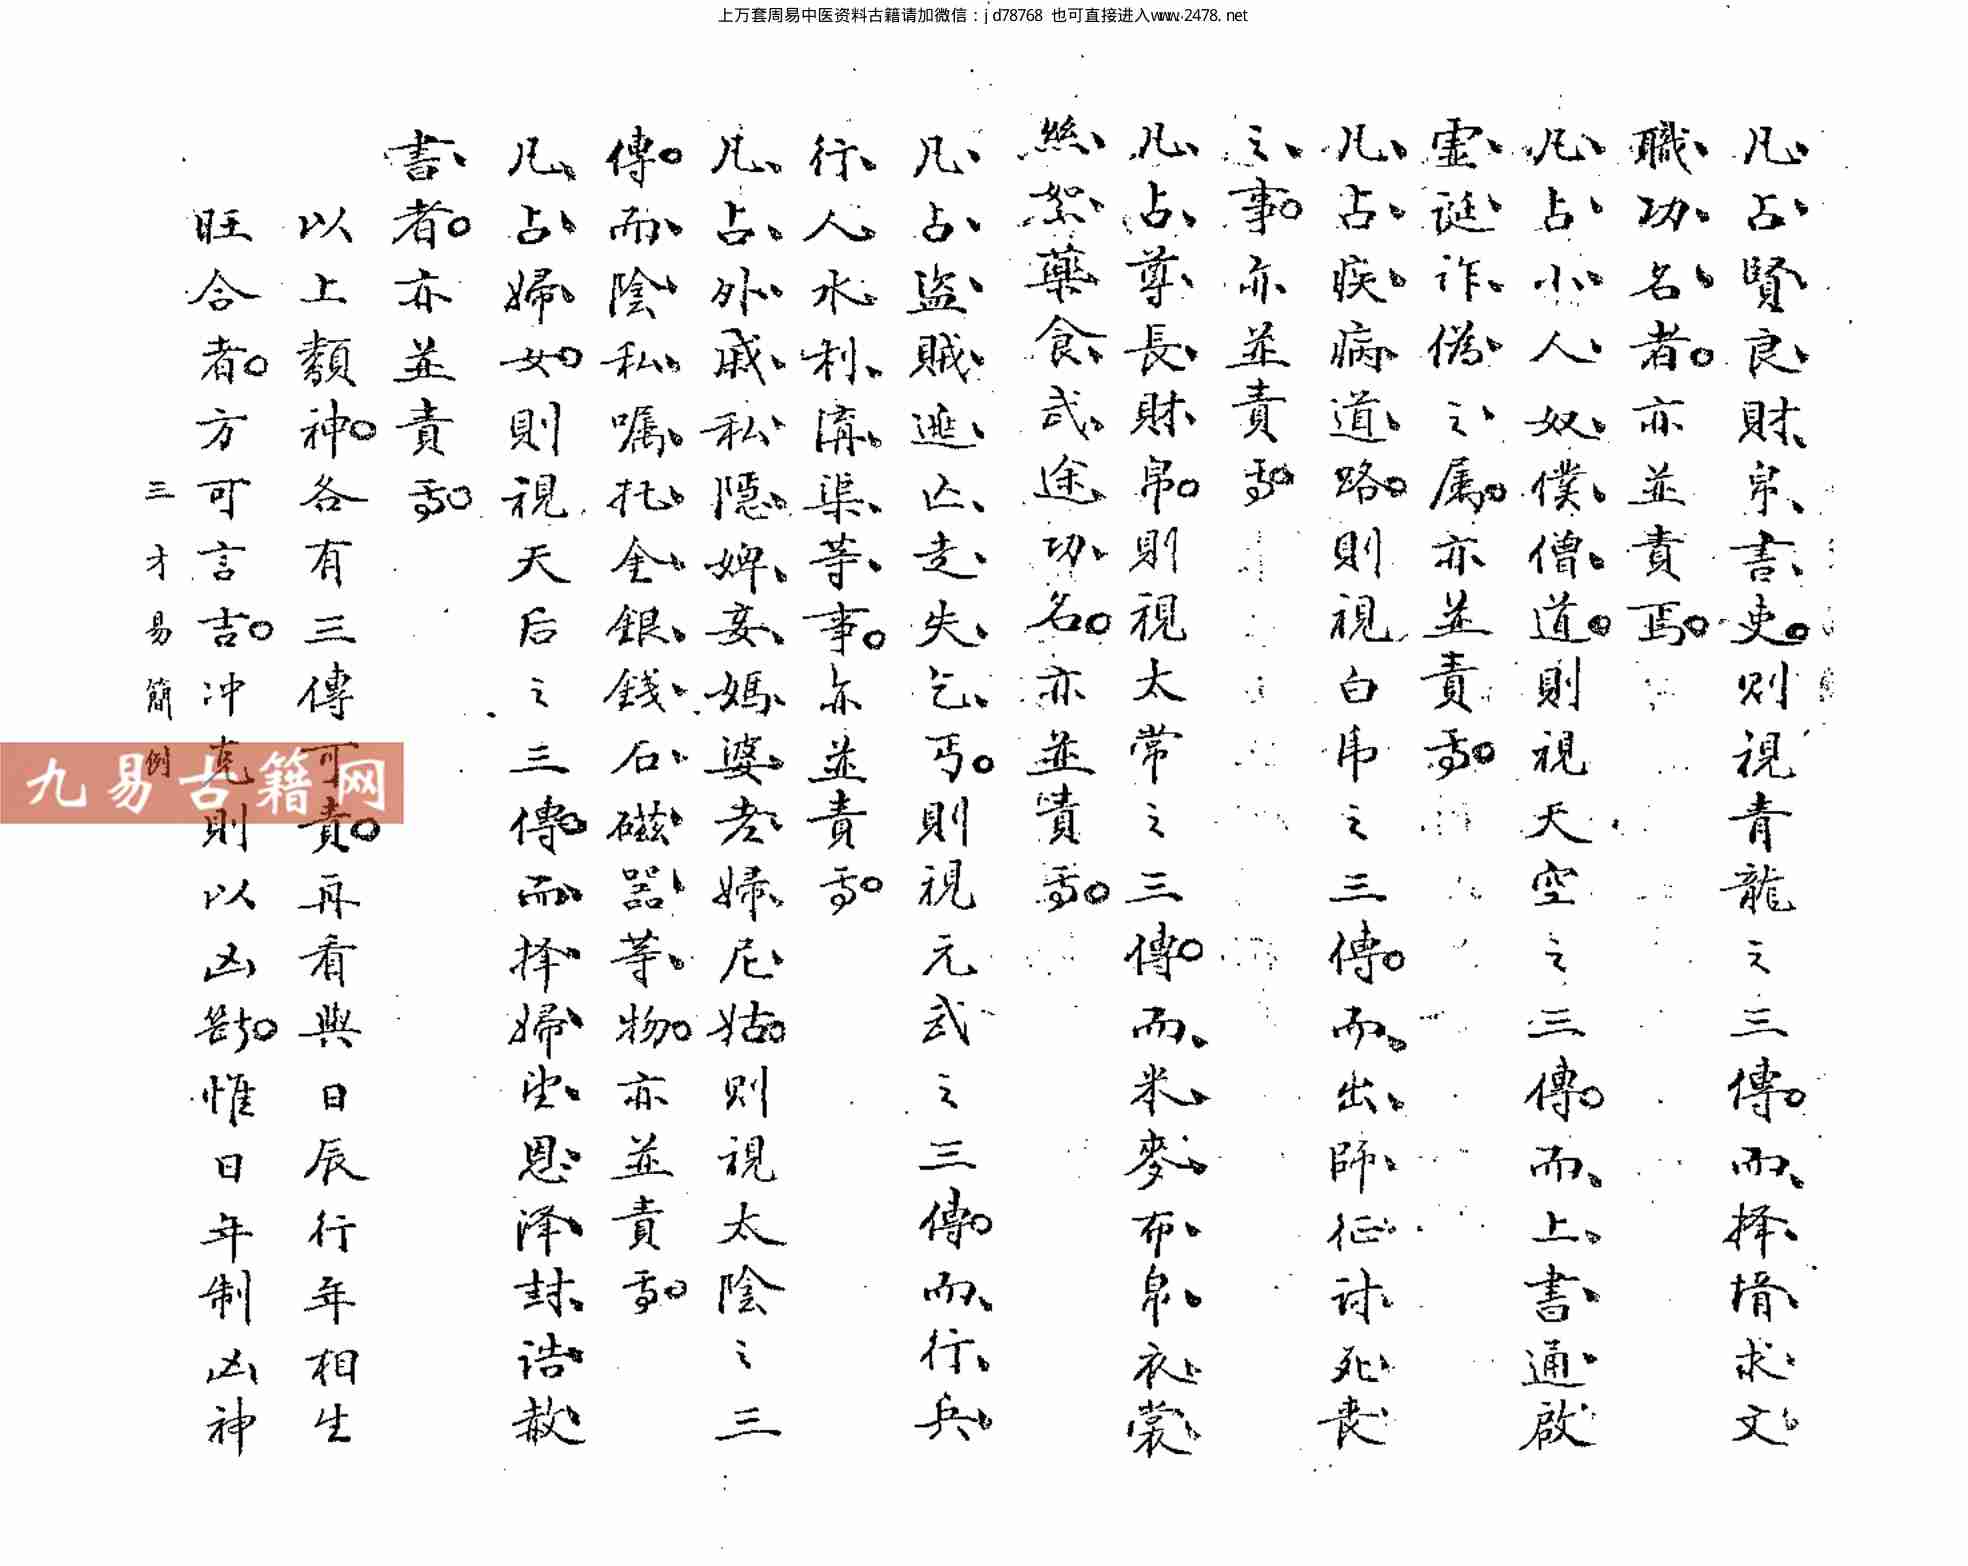 上万套周易中医资料古籍请加微信：jd78768 也可直接进入www.2478.net
凡占賢良財帛書吏則視青龍之三傳而择壻求文
職功名者亦並責焉
凡占小人奴僕僧道則視天空之三傳而上書通啟
虛誕詐偽之属亦並責焉
凡占疾病道路則視白虎之三傳而出師征討死丧
之事亦並責焉
凡占尊長財帛則視太常之三傳而米麥布帛衣裳
絲絮藥食武途功名亦並責焉
凡占盜賊逃亡走失乞丐則視元武之三傳而行兵
行人水利溝渠等事亦並責焉
凡占外戚私隱婢妾媽婆老婦尼姑则視太陰之三
傳而陰私嘱托金銀錢石磁器等物亦並責焉
凡占婦女則視天后之三傳而择婦望恩泽封诰赦
書者亦並責焉
以上類神各有三傳可責再看與日辰行年相生
旺合者方可言吉冲克則以凶断惟日年制凶神
三才易簡例
九易古籍网